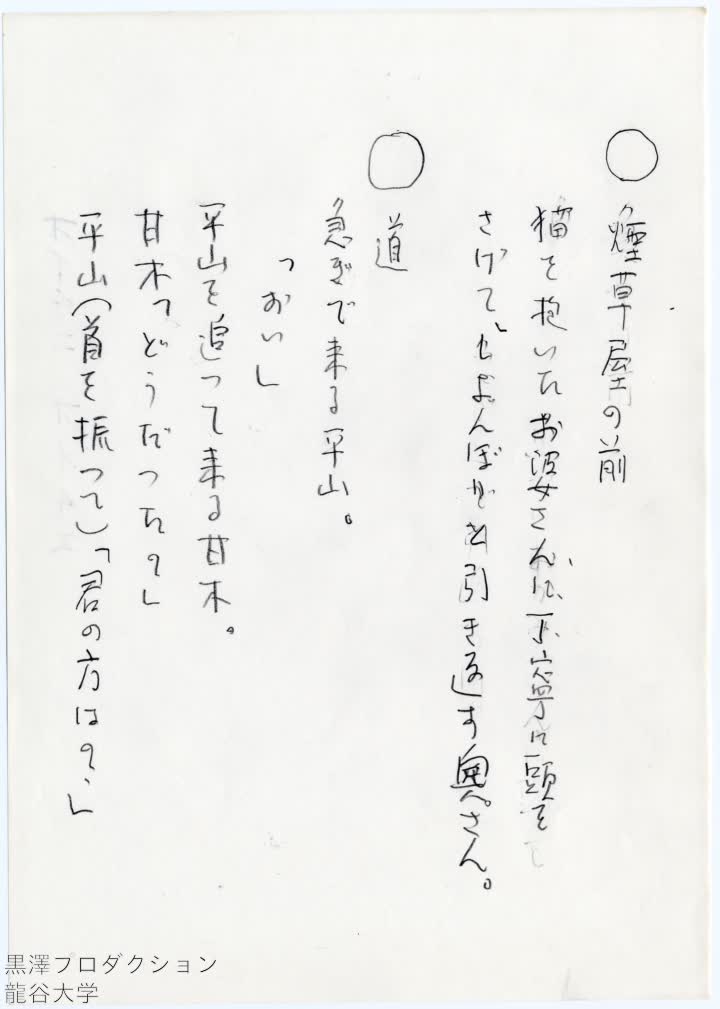 ○ 煙草屋の前
猫を抱いたお婆さんに、丁寧に頭を
さげて、しょんぼりと引き返す奥さん。
○ 道
急ぎで来る平山。
「おい」
平山を追って来る甘木。
甘木「どうだった?」
平山(首を振って)「君の方は?」
黒澤プロダクション
龍谷大学